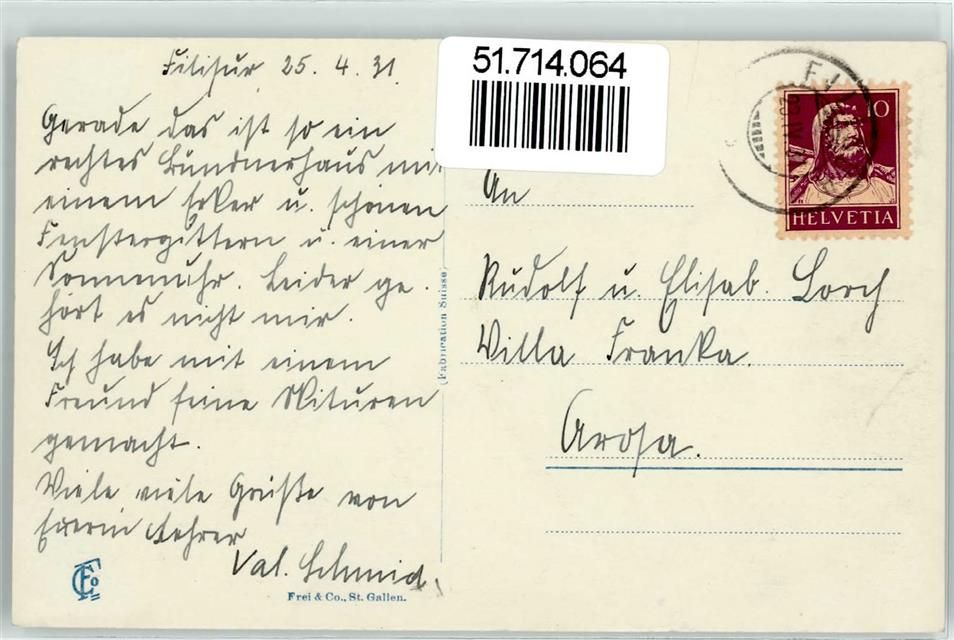 Filisur, 25. 4. 31.
Gerade das ist so ein
rechtes Bündnerhaus mit
einem Erker u. schönen
Fenstergittern u. einer
Sonnenuhr. Leider ge-
hört es nicht mir.
Ich habe mit einem
Freund feine Skituren
gemacht.
Viele viele Grüße von
Euerm Lehrer
Val. Schmid.
Frei & Co., St. Gallen.
(Fabrication Suisse)
51.714.064
10
HELVETIA
An
Rudolf u. Elisab. Lorch
Villa Franka.
Arosa.